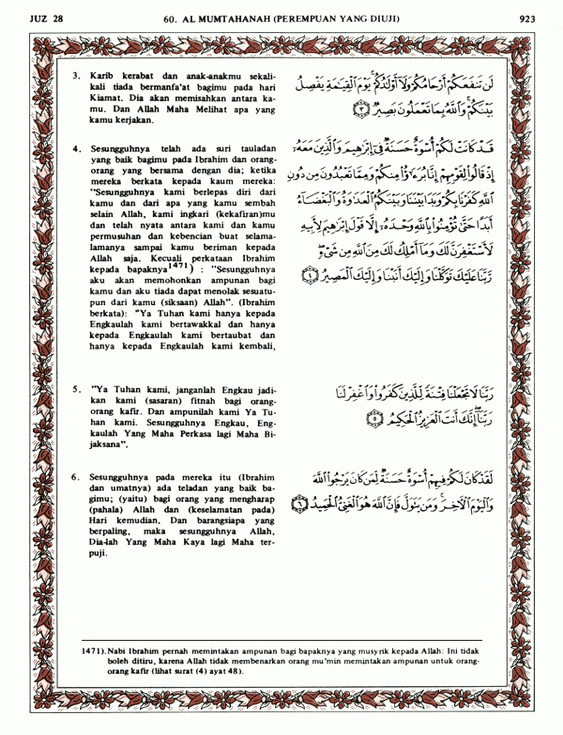 JUZ 28
60. AL MUMTAHANAH (PEREMPUAN YANG DIUJI)
923
3. Karib kerabat dan anak-anakmu sekali-
kali tiada bermanfa'at bagimu pada hari
Kiamat. Dia akan memisahkan antara ka-
mu. Dan Allah Maha Melihat apa yang
kamu kerjakan.
لَن تَنفَعَكُمْ أَرْحَامُكُمْ وَلَآ أَوْلَٰدُكُمْ ۚ يَوْمَ ٱلْقِيَٰمَةِ يَفْصِلُ
بَيْنَكُمْ ۚ وَٱللَّهُ بِمَا تَعْمَلُونَ بَصِيرٌ ﴿٣﴾
4. Sesungguhnya telah ada suri tauladan
yang baik bagimu pada Ibrahim dan orang-
orang yang bersama dengan dia; ketika
mereka berkata kepada kaum mereka:
"Sesungguhnya kami berlepas diri dari
kamu dan dari apa yang kamu sembah
selain Allah, kami ingkari (kekafiran)mu
dan telah nyata antara kami dan kamu
permusuhan dan kebencian buat selama-
lamanya sampai kamu beriman kepada
Allah saja. Kecuali perkataan Ibrahim
kepada bapaknya1471) : "Sesungguhnya
aku akan memohonkan ampunan bagi
kamu dan aku tiada dapat menolak sesuatu-
pun dari kamu (siksaan) Allah". (Ibrahim
berkata): "Ya Tuhan kami hanya kepada
Engkaulah kami bertawakkal dan hanya
kepada Engkaulah kami bertaubat dan
hanya kepada Engkaulah kami kembali,
قَدْ كَانَتْ لَكُمْ أُسْوَةٌ حَسَنَةٌ فِىٓ إِبْرَٰهِيمَ وَٱلَّذِينَ مَعَهُۥٓ
إِذْ قَالُوا۟ لِقَوْمِهِمْ إِنَّا بُرَءَٰٓؤُا۟ مِنكُمْ وَمِمَّا تَعْبُدُونَ مِن دُونِ
ٱللَّهِ كَفَرْنَا بِكُمْ وَبَدَا بَيْنَنَا وَبَيْنَكُمُ ٱلْعَدَٰوَةُ وَٱلْبَغْضَآءُ
أَبَدًا حَتَّىٰ تُؤْمِنُوا۟ بِٱللَّهِ وَحْدَهُۥٓ إِلَّا قَوْلَ إِبْرَٰهِيمَ لِأَبِيهِ
لَأَسْتَغْفِرَنَّ لَكَ وَمَآ أَمْلِكُ لَكَ مِنَ ٱللَّهِ مِن شَىْءٍ ۖ
رَّبَّنَا عَلَيْكَ تَوَكَّلْنَا وَإِلَيْكَ أَنَبْنَا وَإِلَيْكَ ٱلْمَصِيرُ ﴿٤﴾
5. "Ya Tuhan kami, janganlah Engkau jadi-
kan kami (sasaran) fitnah bagi orang-
orang kafir. Dan ampunilah kami Ya Tu-
han kami. Sesungguhnya Engkau, Eng-
kaulah Yang Maha Perkasa lagi Maha Bi-
jaksana".
رَبَّنَا لَا تَجْعَلْنَا فِتْنَةً لِّلَّذِينَ كَفَرُوا۟ وَٱغْفِرْ لَنَا
رَبَّنَآ ۖ إِنَّكَ أَنتَ ٱلْعَزِيزُ ٱلْحَكِيمُ ﴿٥﴾
6. Sesungguhnya pada mereka itu (Ibrahim
dan umatnya) ada teladan yang baik ba-
gimu; (yaitu) bagi orang yang mengharap
(pahala) Allah dan (keselamatan pada)
Hari kemudian. Dan barangsiapa yang
berpaling, maka sesungguhnya Allah,
Dia-lah Yang Maha Kaya lagi Maha ter-
puji.
لَقَدْ كَانَ لَكُمْ فِيهِمْ أُسْوَةٌ حَسَنَةٌ لِّمَن كَانَ يَرْجُوا۟ ٱللَّهَ
وَٱلْيَوْمَ ٱلْءَاخِرَ ۚ وَمَن يَتَوَلَّ فَإِنَّ ٱللَّهَ هُوَ ٱلْغَنِىُّ ٱلْحَمِيدُ ﴿٦﴾
1471). Nabi Ibrahim pernah memintakan ampunan bagi bapaknya yang musyrik kepada Allah: Ini tidak
boleh ditiru, karena Allah tidak membenarkan orang mu'min memintakan ampunan untuk orang-
orang kafir (lihat surat (4) ayat 48).